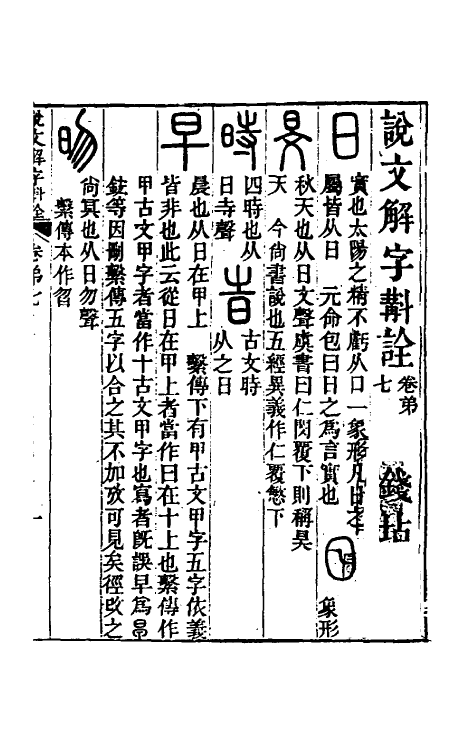 說文解字斠詮 卷弟七 錢坫
日 實也太陽之精不虧从口一象形凡日之
屬皆从日 元命包曰日之爲言實也 象形
旻 秋天也从日文聲虞書曰仁閔覆下則稱旻
天 今尙書說也五經異義作仁覆慜下
時 四時也从日寺聲 旹 古文時从之日
早 晨也从日在甲上 繫傳下有甲古文甲字五字依義
皆非也此云從日在甲上者當作日在十上也繫傳作
甲古文甲字者當作十古文甲字也寫者旣誤早爲𣅀
鉉等因刪繫傳五字以合之其不加攷可見矣徑改之
昒 尙冥也从日勿聲
繫傳本作曶
說文解字斠詮 卷弟七 一